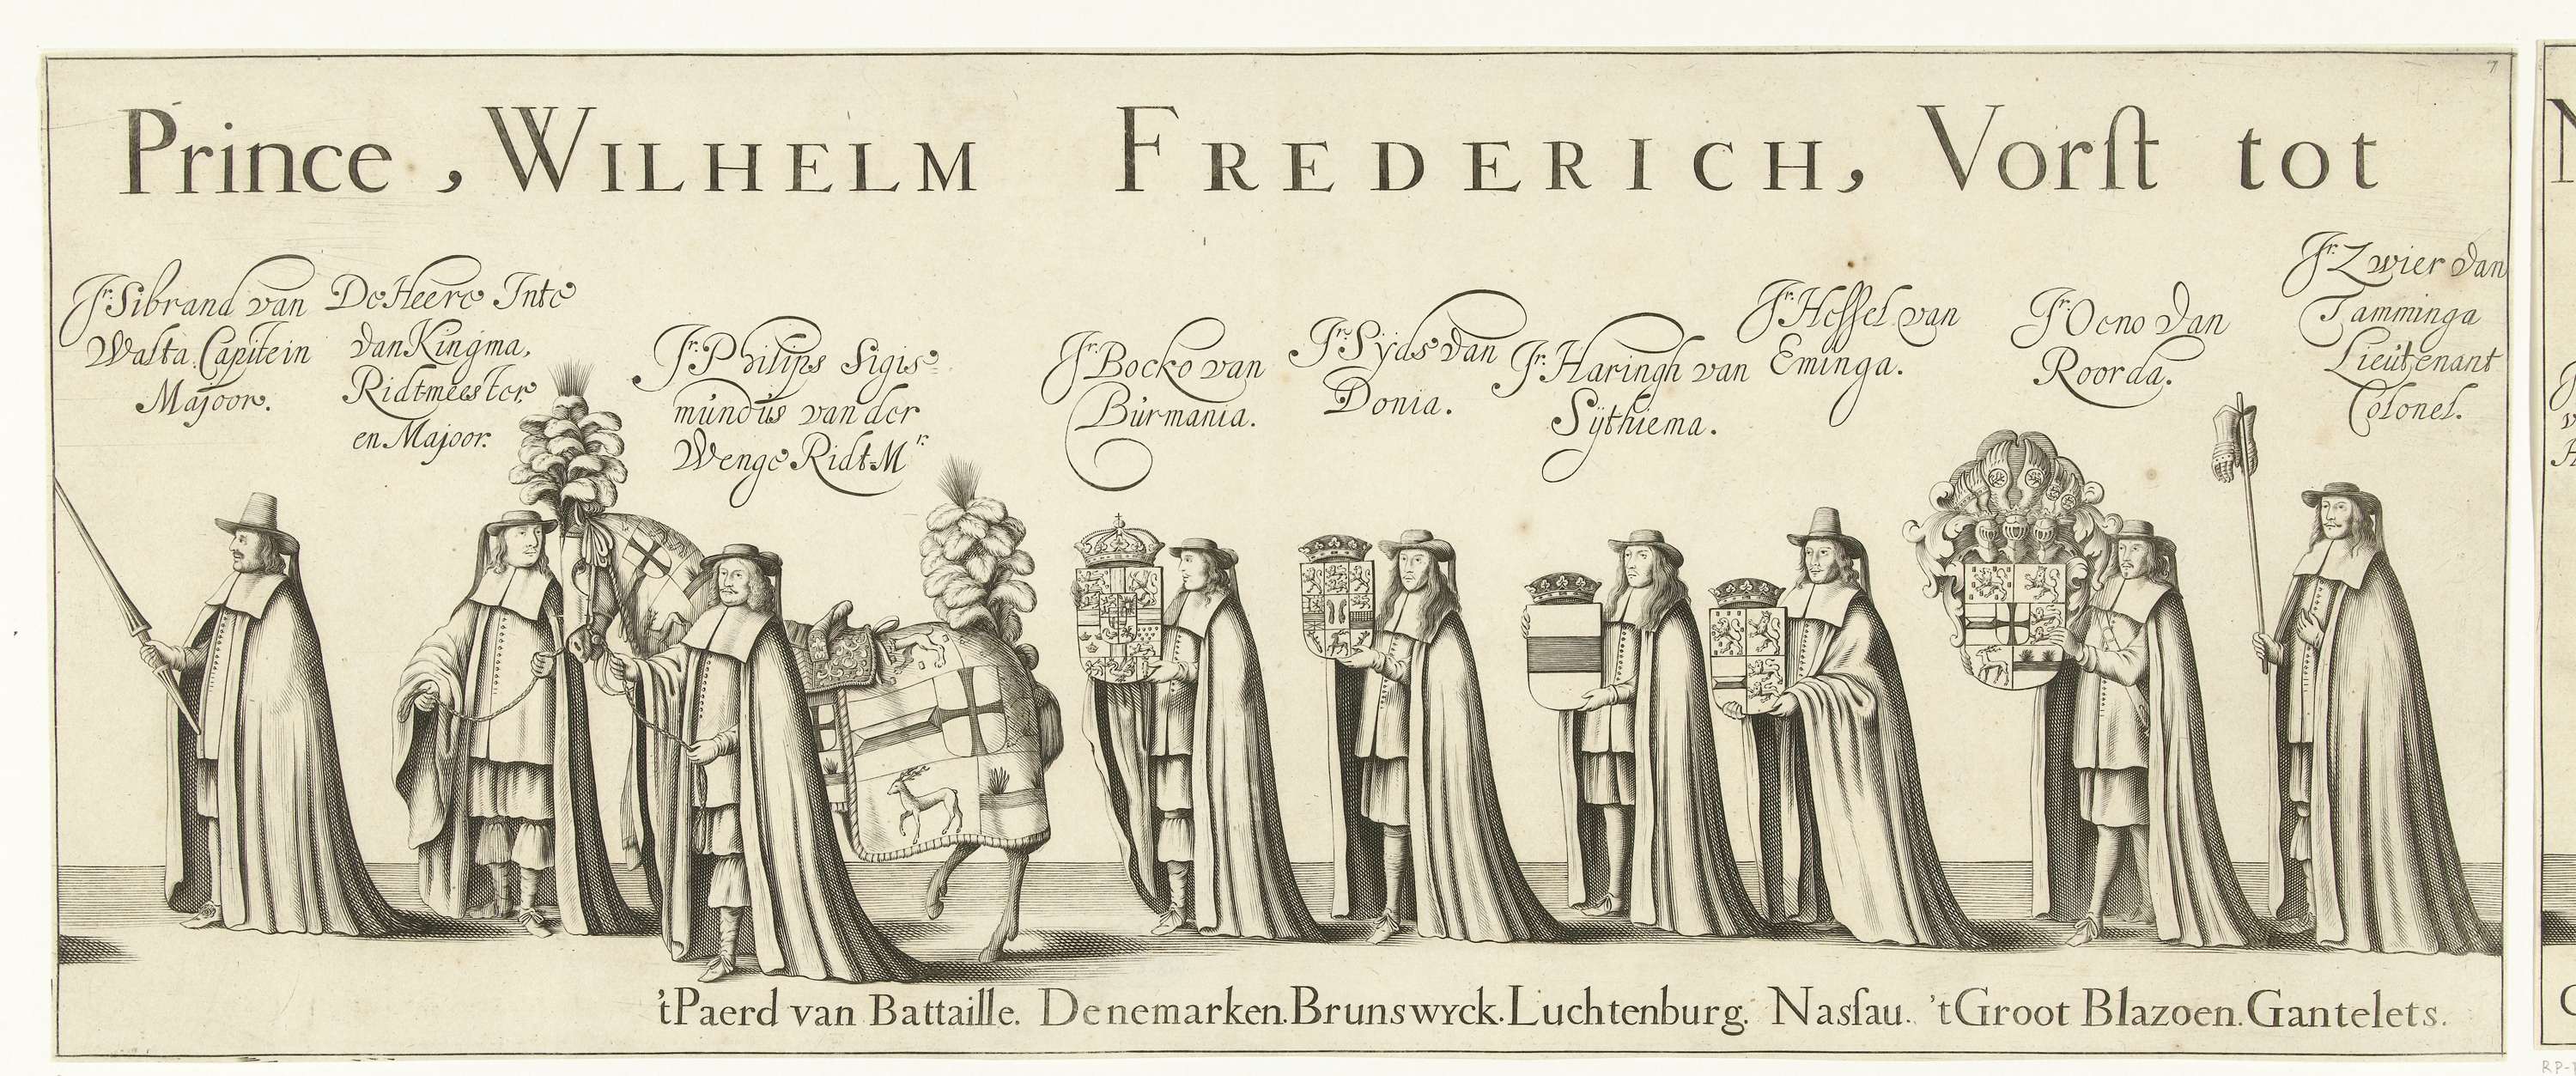 Prince, WILHELM FREDERICH, Vorſt tot
Jr. Sibrand van
Walta Capitein
Majoor.
De Heere Inte
van Kingma,
Ridtmeester
en Majoor.
Jr. Philips Sigis=
mundus van der
Wenge Ridt-Mr.
Jr. Bocko van
Burmania.
Jr. Syds van
Donia.
Jr. Haringh van
Sÿthiema.
Jr. Heſſel van
Eminga.
Jr. Oeno van
Roorda.
Jr. Zwier van
Tamminga
Lieutenant
Colonel.
't Paerd van Battaille. Denemarken. Brunswyck. Luchtenburg. Nasſau. 't Groot Blazoen. Gantelets.
7